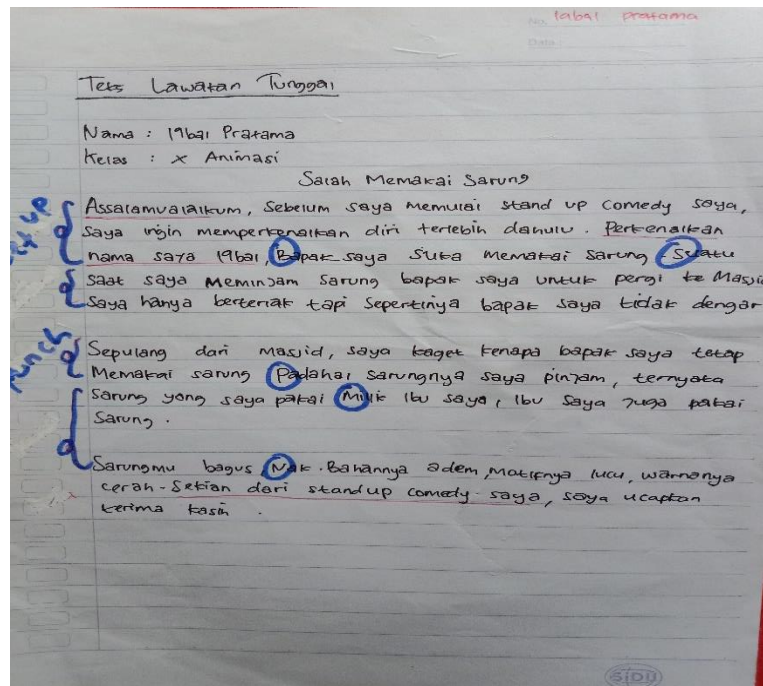 No. Iqbal pratama
Date :
Teks Lawakan Tunggal
Nama : Iqbal Pratama
Kelas : X Animasi
Salah Memakai Sarung
Assalamualaikum, Sebelum saya memulai stand up comedy saya,
Saya ingin memperkenalkan diri terlebih dahulu. Perkenalkan
nama saya Iqbal, Bapak saya Suka memakai sarung. Suatu
saat saya Meminjam Sarung bapak saya untuk pergi ke Masjid
Saya hanya berteriak tapi Sepertinya bapak saya tidak dengar
Sepulang dari masjid, saya kaget kenapa bapak saya tetap
Memakai sarung Padahal Sarungnya saya pinjam, ternyata
Sarung yang saya pakai Milik Ibu saya, Ibu Saya Juga pakai
Sarung.
Sarungmu bagus, Nak. Bahannya adem, Motifnya lucu, warnanya
cerah. Sekian dari standup comedy saya, saya ucapkan
terima kasih.
SIDU